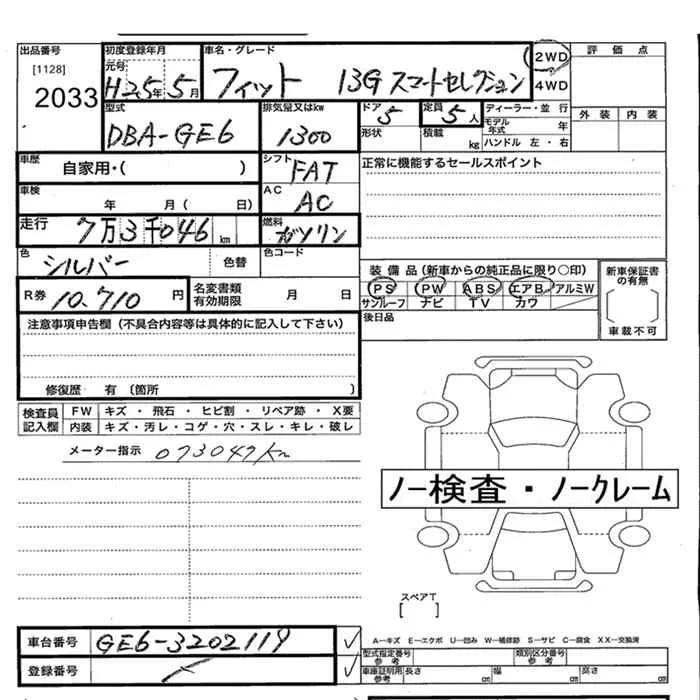 出品番号 初度登録年月 車名・グレード 2WD 評価点
[1128] 元号 H25年 5月 フィット 13G スマートセレクション 4WD
2033 型式 排気量又はkw ドア 5 定員 5人 ディーラー・並行 外装 内装
DBA-GE6 1300 形状 積載 kg モデル年式 年
ハンドル 左・右
車歴 自家用・( ) シフト FAT 正常に機能するセールスポイント
車検 年 月( 日) AC AC
走行 7万3千046km 燃料 ガソリン
色 シルバー 色替 色コード 装備品(新車からの純正品に限り○印) 新車保証書の有無
R券 10,710円 名変書類有効期限 月 日 PS PW ABS エアB アルミW
サンルーフ ナビ TV カワ
注意事項申告欄(不具合内容等は具体的に記入して下さい) 後日品 車載不可
修復歴 有 (箇所 )
検査員記入欄 FW キズ・飛石・ヒビ割・リペア跡・X要
内装 キズ・汚レ・コゲ・穴・スレ・キレ・破レ
メーター指示 073047km
ノー検査・ノークレーム
スペアT
[ ]
車台番号 GE6-3202119 A―キズ E―エクボ U―凹み W―補修跡 S―サビ C―腐食 XX―交換済
型式指定番号 参考 類別区分番号 参考
登録番号 車庫証明用参考 長さ cm 幅 cm 高さ cm